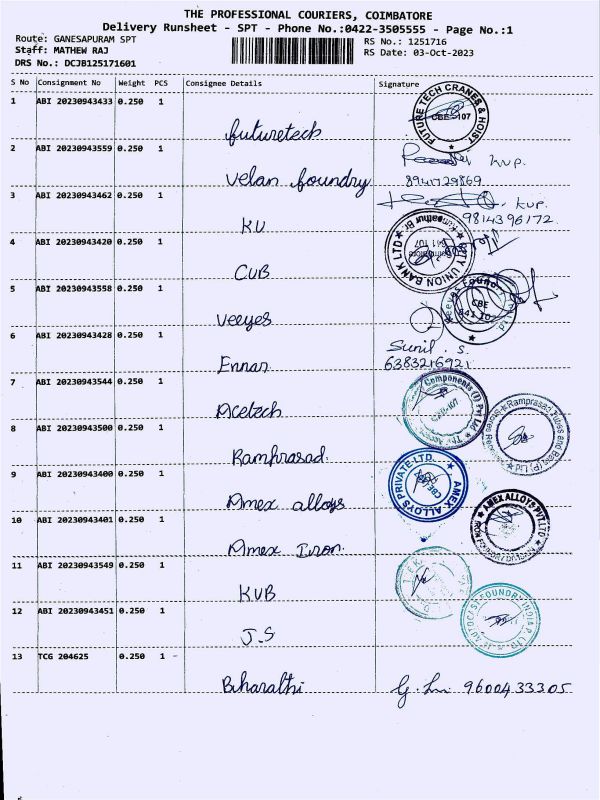 THE PROFESSIONAL COURIERS, COIMBATORE
Delivery Runsheet - SPT - Phone No.:0422-3505555 - Page No.:1
Route: GANESAPURAM SPT
RS No.: 1251716
Staff: MATHEW RAJ
RS Date: 03-Oct-2023
DRS No.: DCJB125171601
S No Consignment No Weight PCS Consignee Details Signature
1 ABI 20230943433 0.250 1
FUTURE TECH CRANES & HOIST
CBE-107
futuretech
2 ABI 20230943559 0.250 1
kvp.
8941729869
Velan foundry
3 ABI 20230943462 0.250 1
kvp.
9814396172
KV
4 ABI 20230943420 0.250 1
CITY UNION BANK LTD
641 107
CUB
5 ABI 20230943558 0.250 1
CBE
641 107
Veeyes
6 ABI 20230943428 0.250 1
Sunil. S.
6383216921
Ennar
7 ABI 20230943544 0.250 1
Components (I) Pvt Ltd.
Acetech
8 ABI 20230943500 0.250 1
Ramprasad
Ramprasad.
9 ABI 20230943400 0.250 1
AMEX-ALLOYS PRIVATE LTD.
Amex alloys
10 ABI 20230943401 0.250 1
AMEX ALLOYS PVT LTD
Amex Iron.
11 ABI 20230943549 0.250 1
KVB
12 ABI 20230943451 0.250 1
AUTOCAST FOUNDRY INDIA P. LTD
J.S
13 TCG 204625 0.250 1 -
Biharathi
9600433305